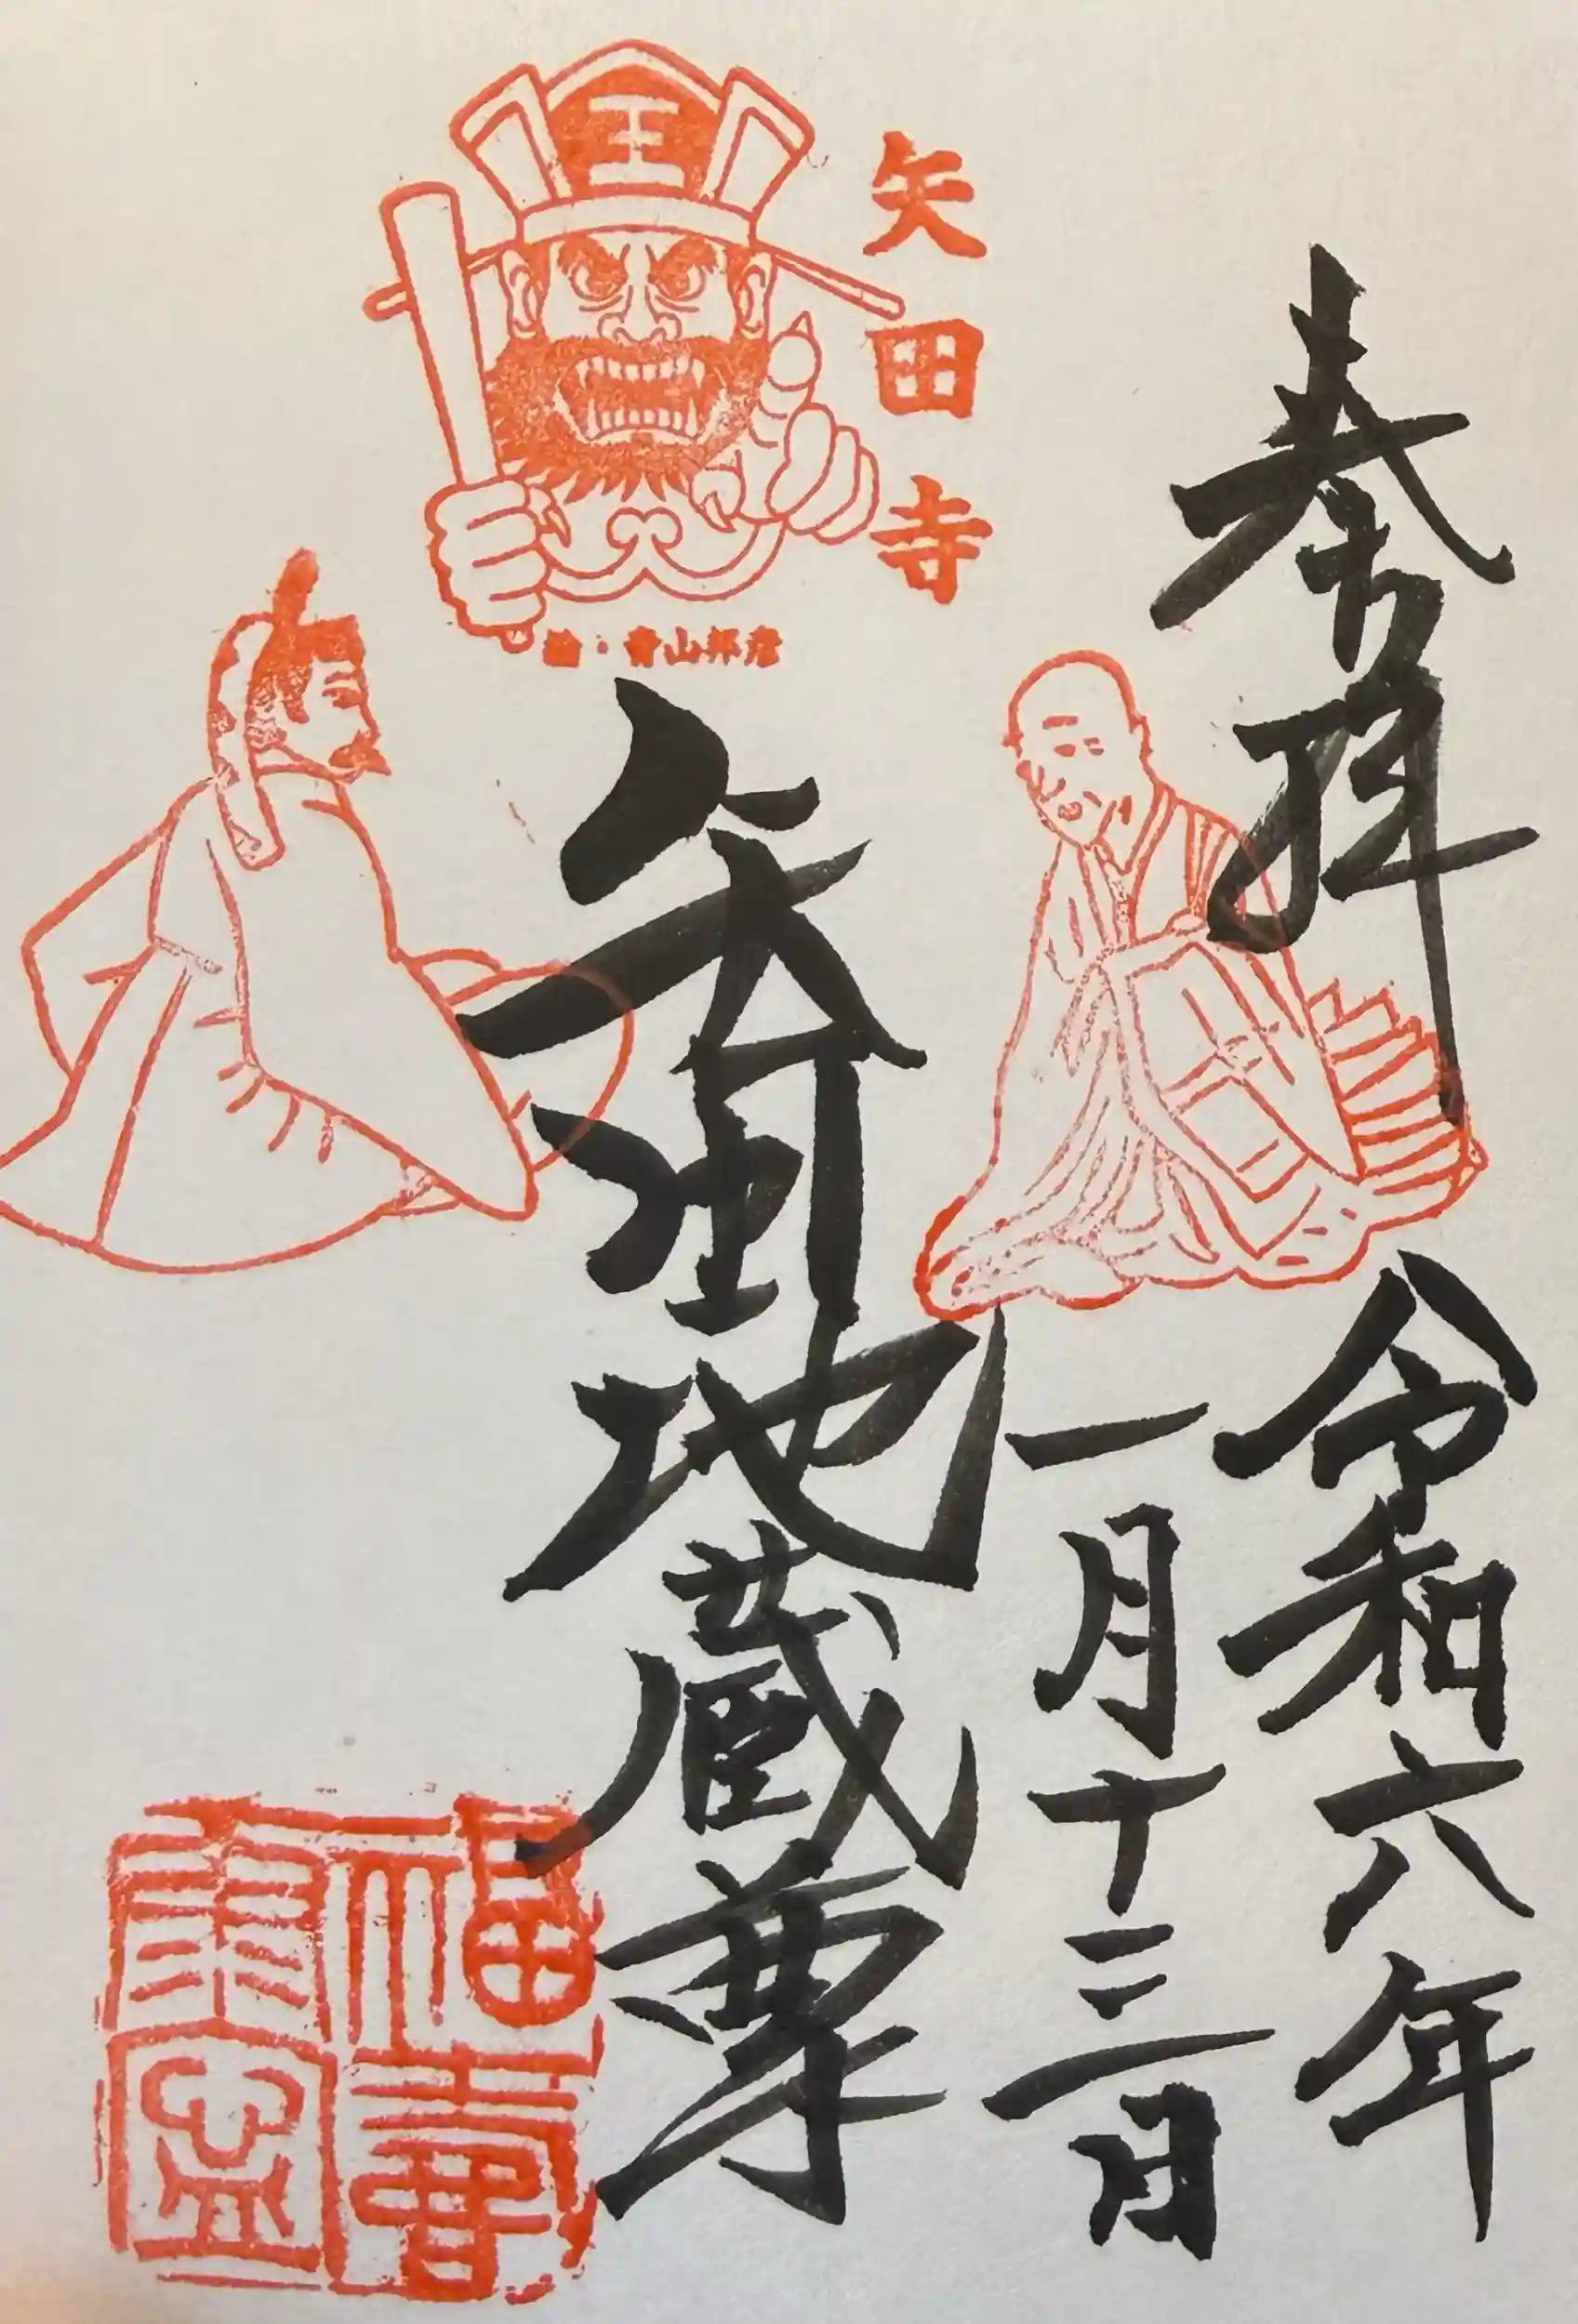 奉拝
令和六年
一月十三日
矢田地蔵尊
矢田寺
王
絵・青山邦彦